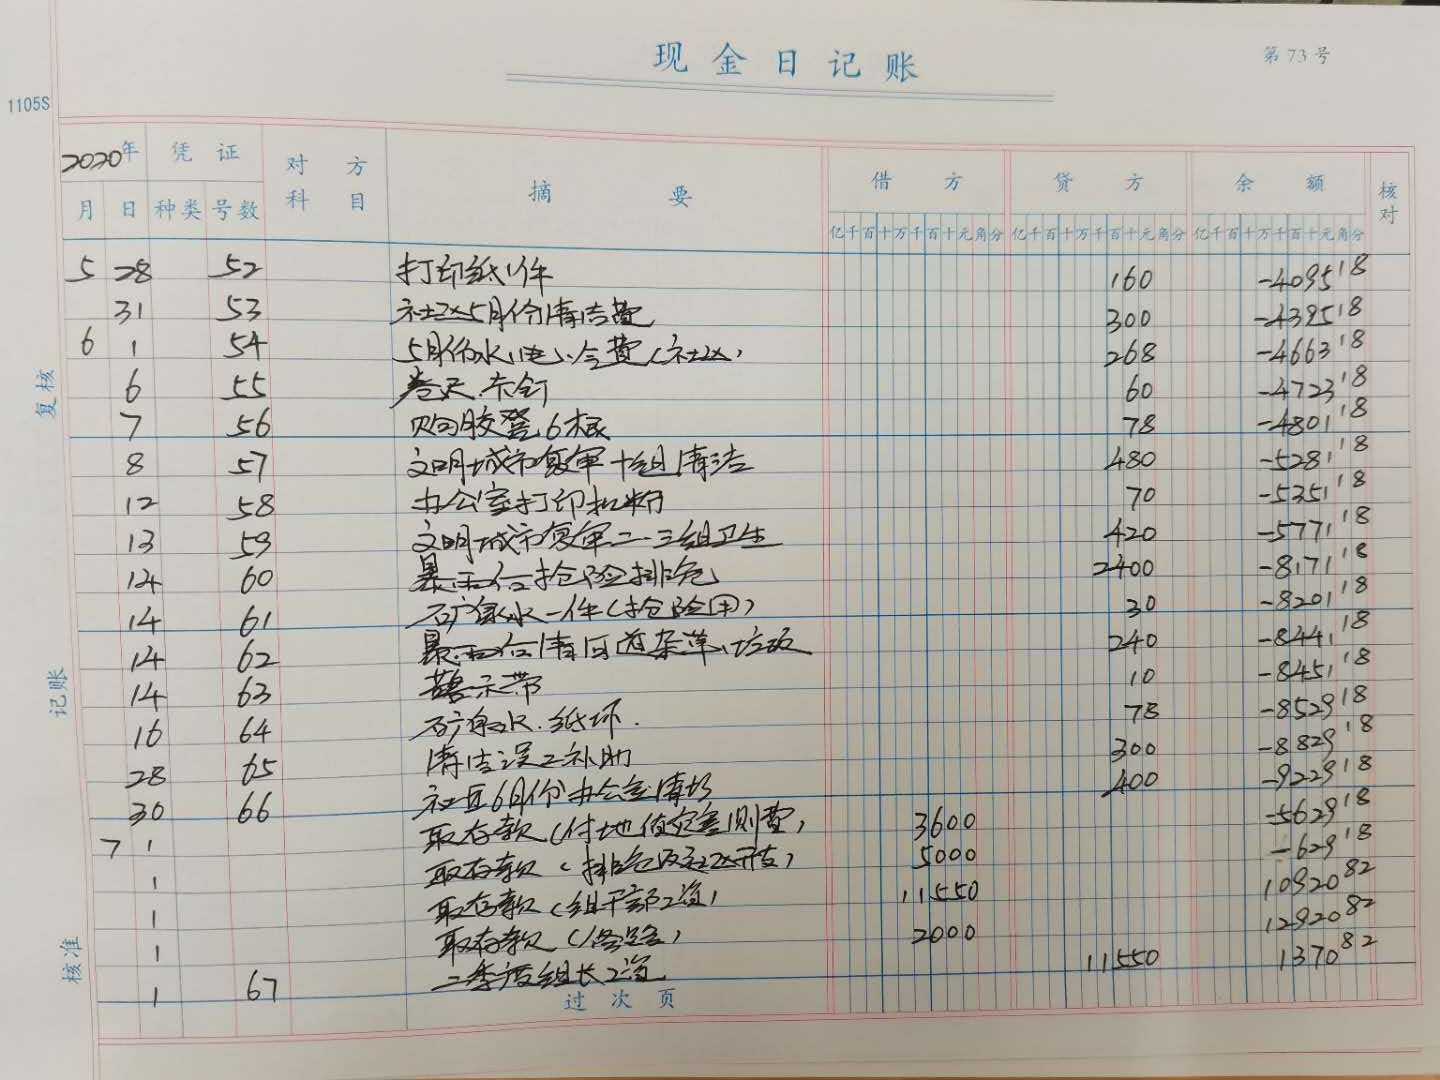 现金日记账
第 73 号
1105S
2020年 凭证 对方科目 摘要 借方 贷方 余额 核对
月 日 种类 号数 亿千百十万千百十元角分 亿千百十万千百十元角分 亿千百十万千百十元角分
5 28 52 打印纸1件 160 -4095 18
31 53 社区5月份清洁费 300 -4395 18
6 1 54 5月份水、电、费(社区) 268 -4663 18
6 55 卷尺.卡钉 60 -4723 18
7 56 购胶凳6根 78 -4801 18
8 57 文明城市复审十组清洁 480 -5281 18
12 58 办公室打印机粉 70 -5351 18
13 59 文明城市复审二.三组卫生 420 -5771 18
14 60 暴雨后抢险排危 2400 -8171 18
14 61 矿泉水一件(抢险用) 30 -8201 18
14 62 暴雨后清河道杂草、垃圾 240 -8441 18
14 63 警示带 10 -8451 18
16 64 矿泉水.纸杯. 78 -8529 18
28 65 清洁误工补助 300 -8829 18
30 66 社区6月份办公室清扫 400 -9229 18
7 1 取存款(付地质灾害测费) 3600 -5629 18
1 取存款(排危及社区开支) 5000 -629 18
1 取存款(组干部工资) 11550 10920 82
1 取存款 2000 12920 82
1 67 二季度组长工资 11550 1370 82
过次页
复核
记账
核准